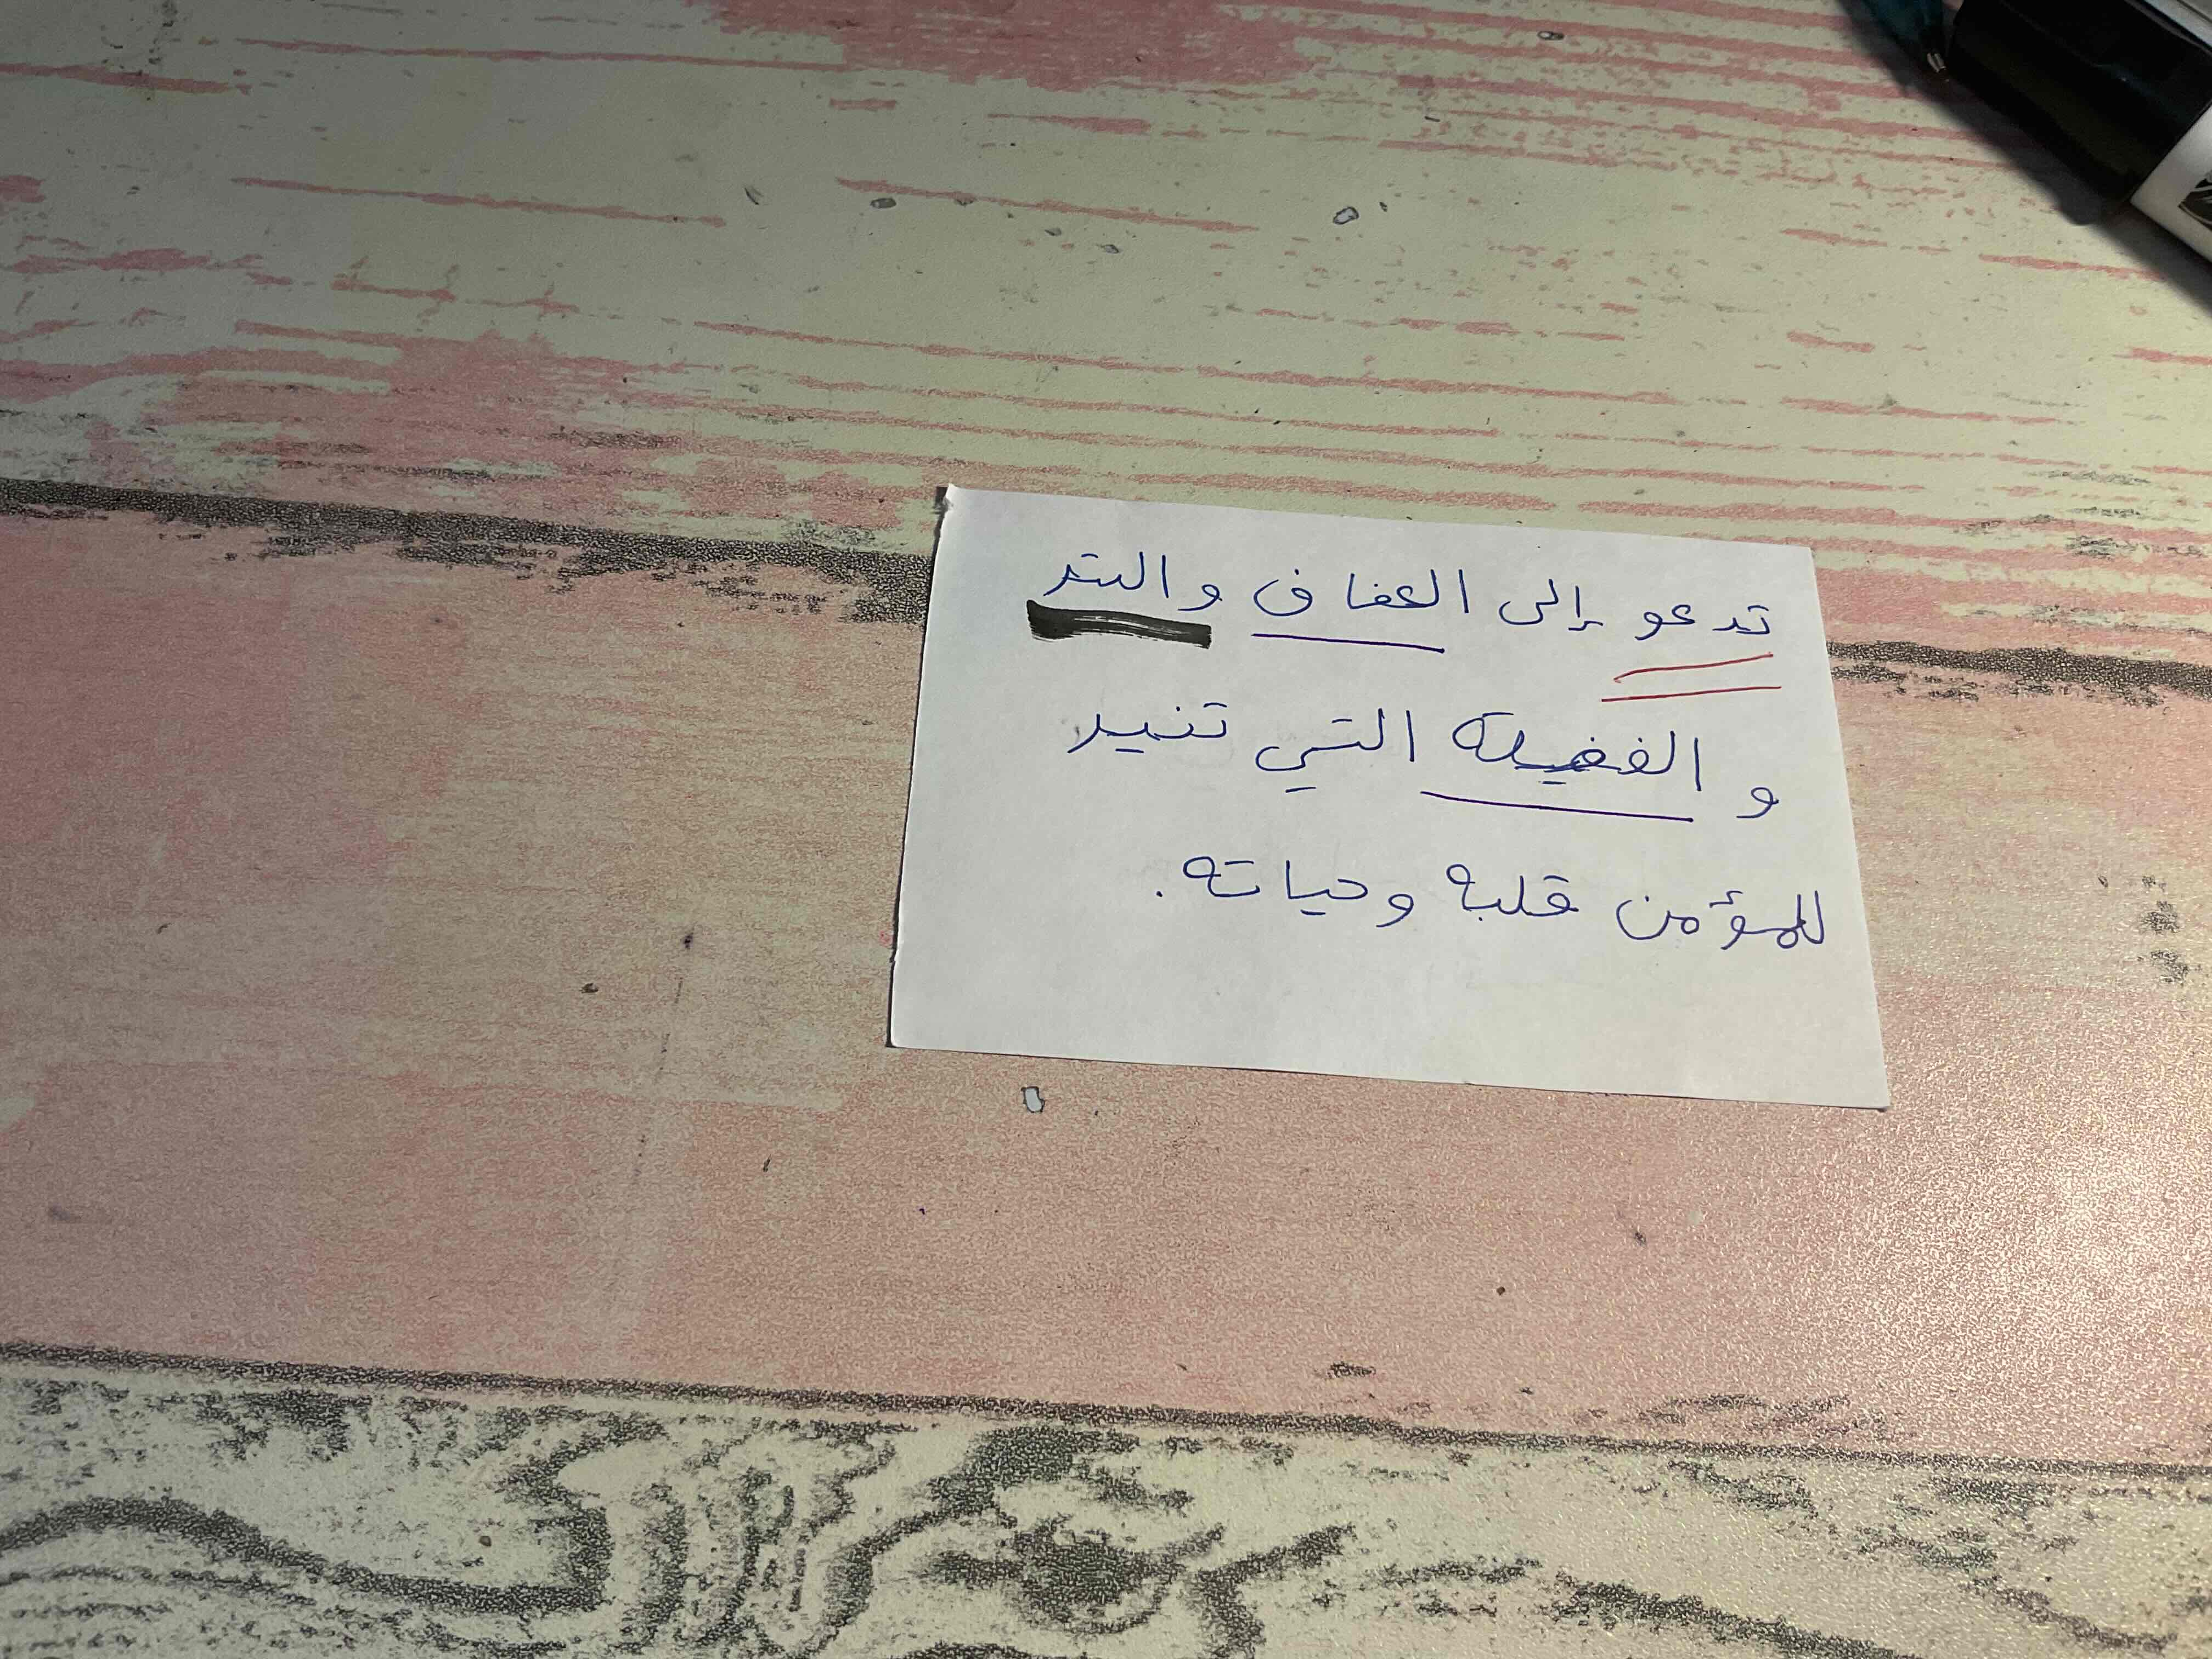 تدعو إلى العفاف والستر
و الفضيلة التي تنير
للمؤمن قلبه وحياته.